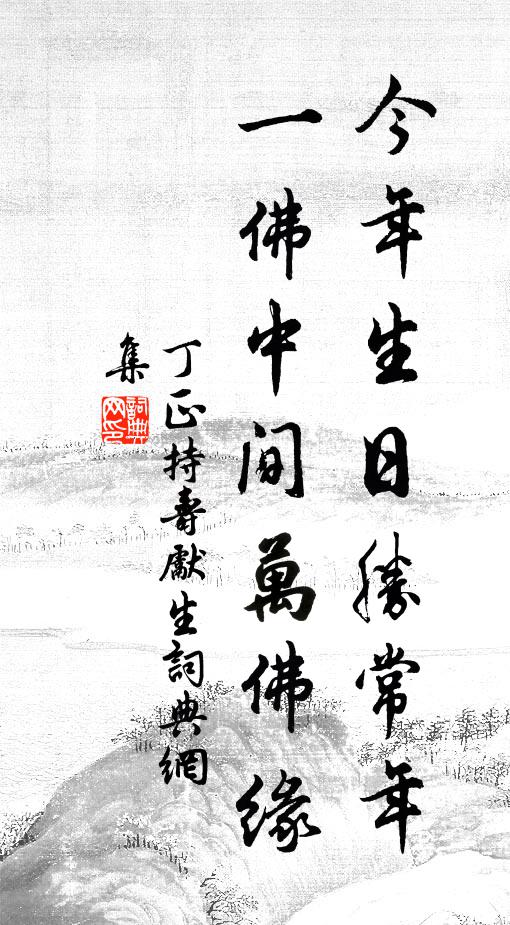 今年生日勝常年
一佛中間萬佛緣
丁正持壽獻生詞典網
集
詞典網印